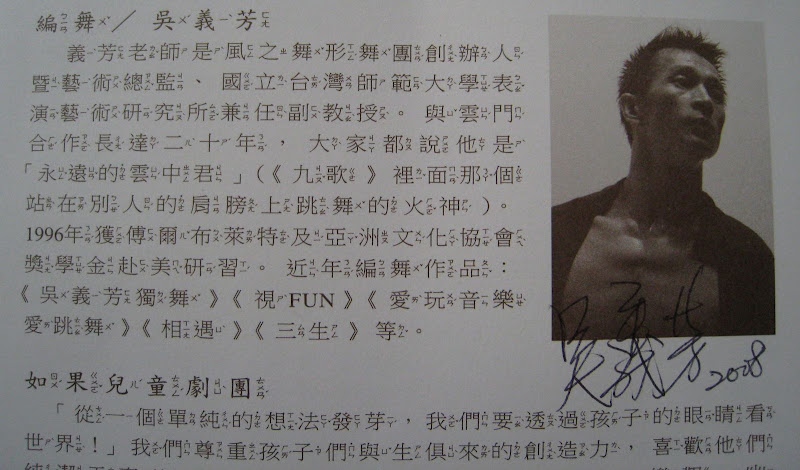 編舞／吳義芳
義芳老師是風之舞形舞團創辦人
暨藝術總監、國立台灣師範大學表
演藝術研究所兼任副教授。與雲門
合作長達二十年，大家都說他是
「永遠的雲中君」(《九歌》裡面那個
站在別人的肩膀上跳舞的火神)。
1996年獲傅爾布萊特及亞洲文化協會
獎學金赴美研習。近年編舞作品：
《吳義芳獨舞》《視FUN》《愛玩音樂
愛跳舞》《相遇》《三生》等。
吳義芳
2008
如果兒童劇團
「從一個單純的想法發芽，我們要透過孩子的眼睛看
世界！」我們尊重孩子們與生俱來的創造力，喜歡他們